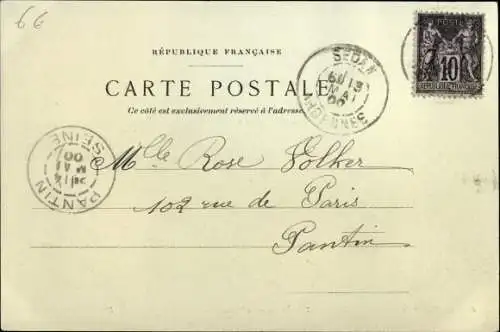 66
RÉPUBLIQUE FRANÇAISE
CARTE POSTALE
Ce côté est exclusivement réservé à l'adresse
SEDAN
13
MAI
00
ARDENNES
POSTE
10
RÉPUBLIQUE FRANÇAISE
PANTIN
14
MAI
00
SEINE
Mlle Rose Volker
102 rue de Paris
Pantin